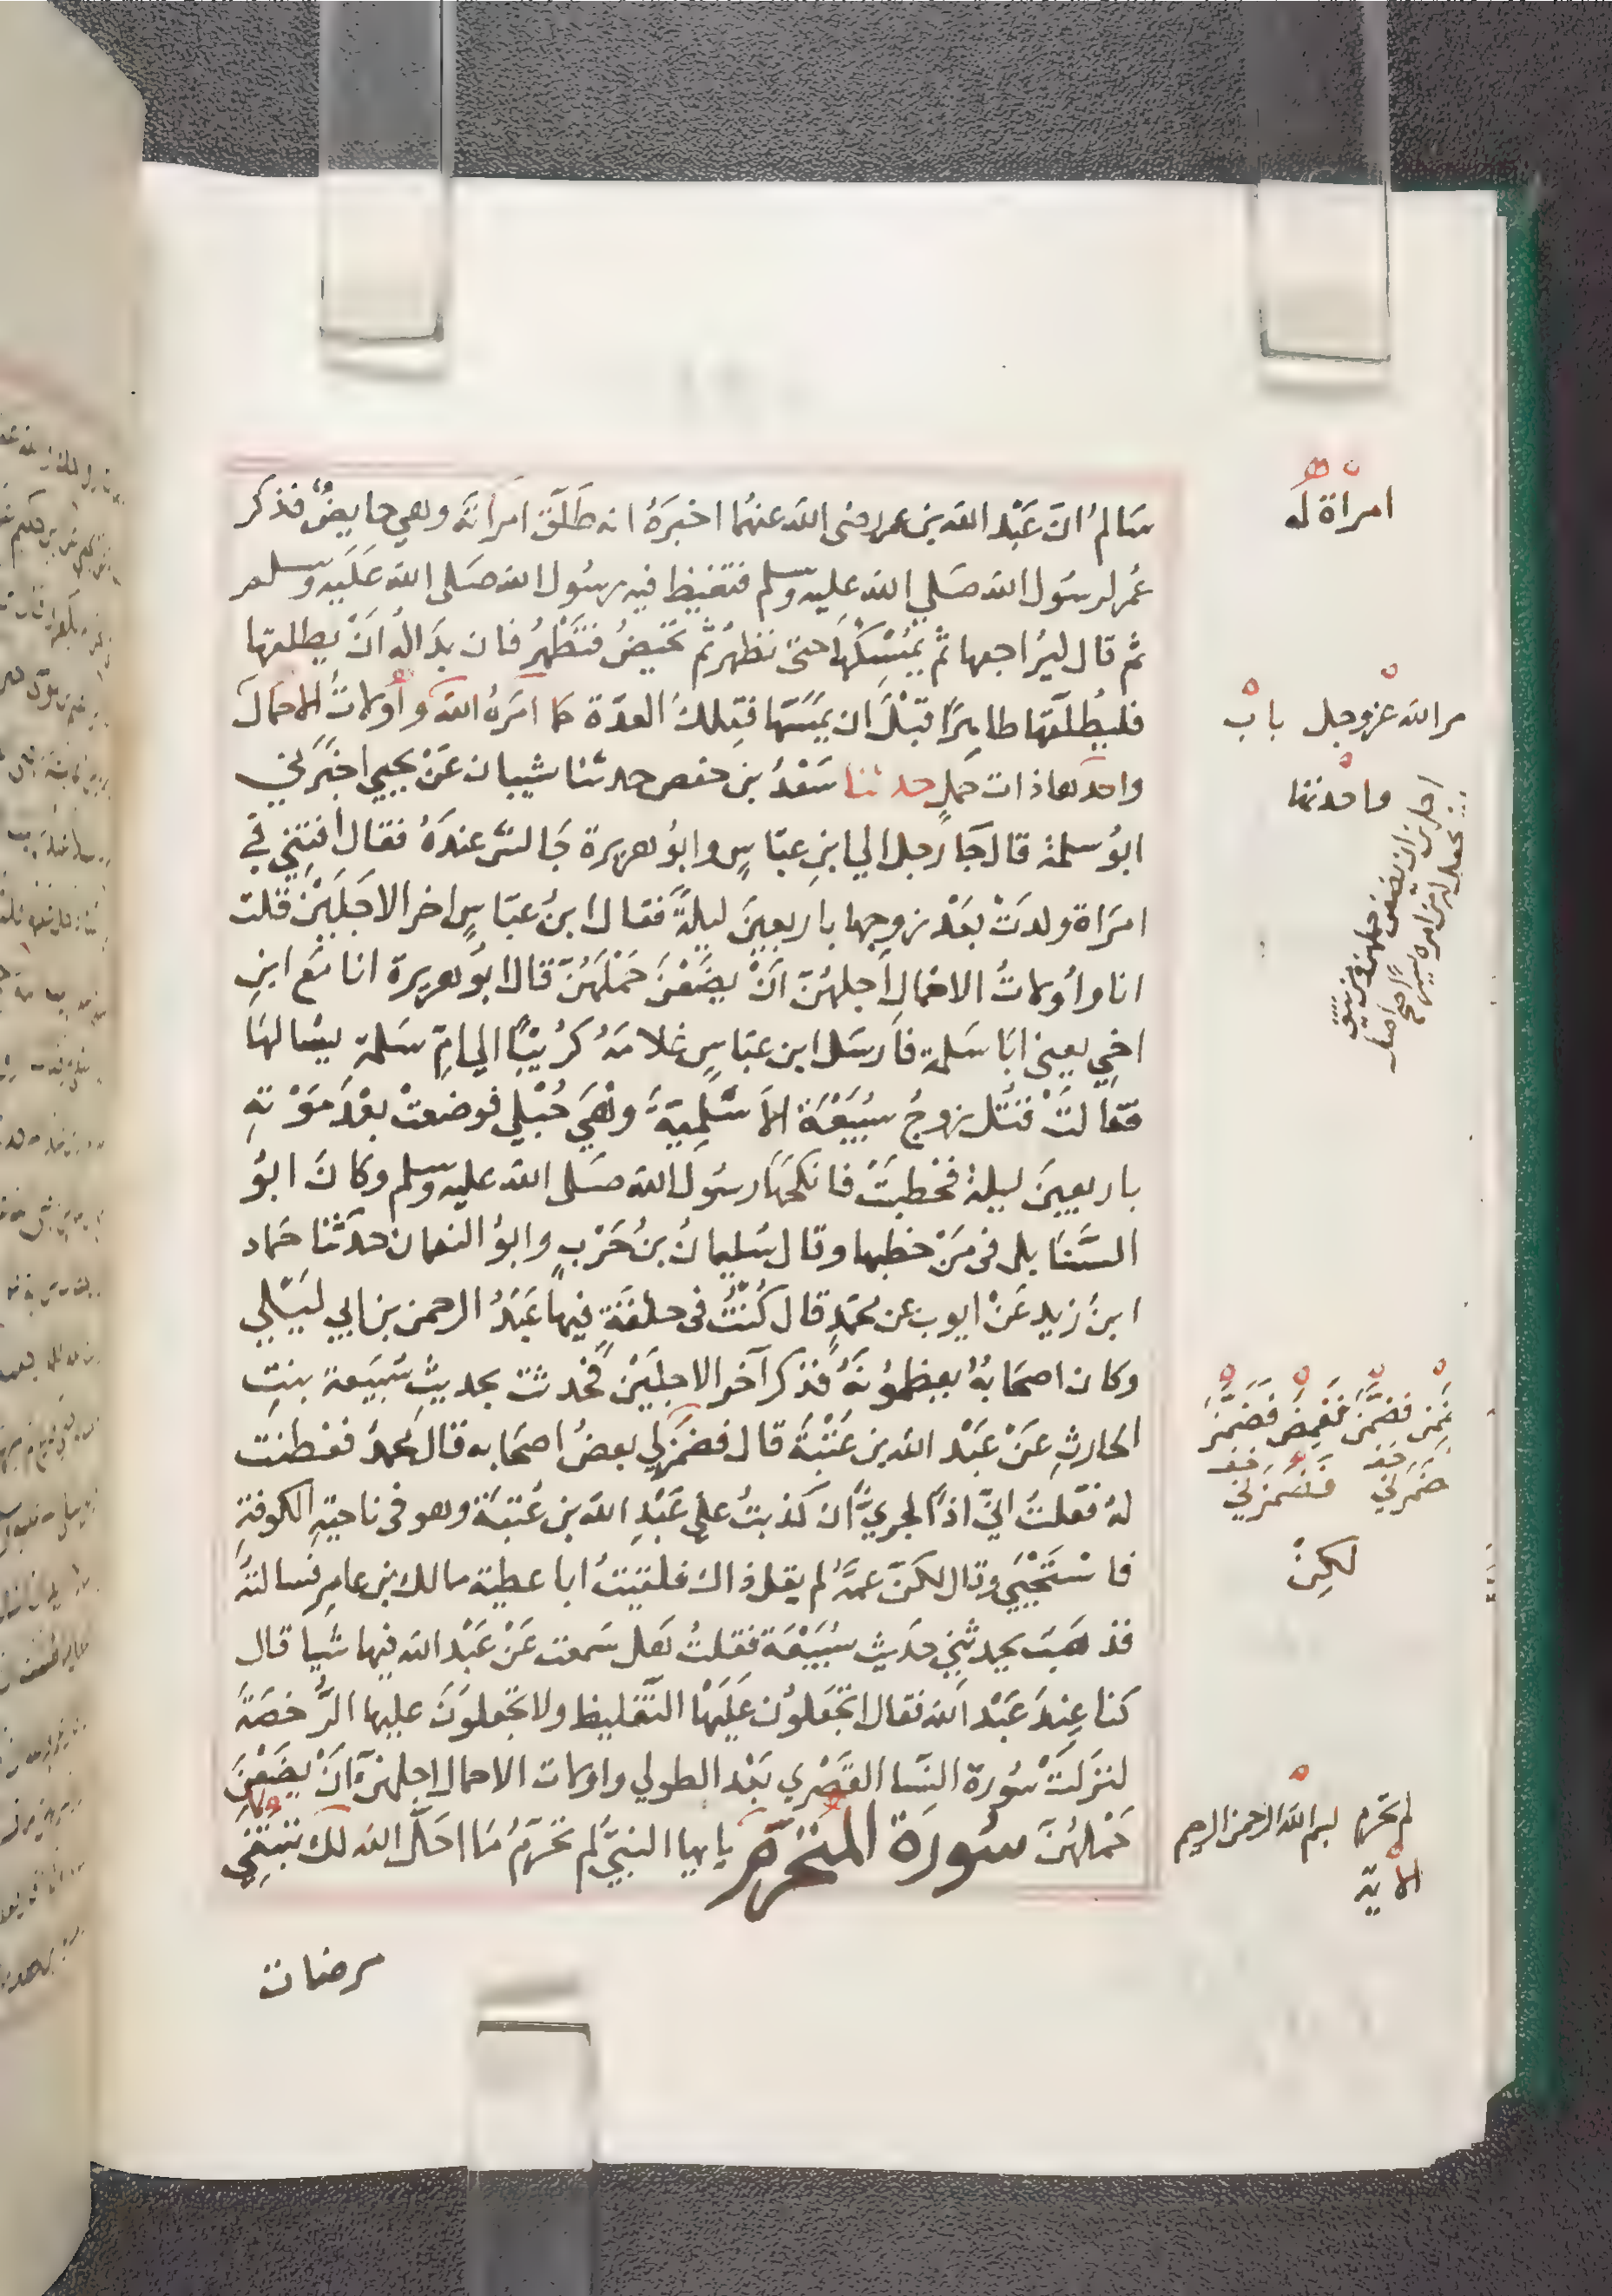 سَالمُ انّ عَبْد الله بن عمر رضى الله عنهُما اخبَرَهُ انه طَلّقَ امرَاتَهُ وهي حايضٌ فذكر
عُمر لرسُول الله صَلي الله عليه وسلم فتغيظ فيه رسُول الله صَلى الله عَلَيه وسلم
ثم قال ليُراجعها ثم يمُسِكْهَا حتى تطهُر ثم تحيضُ فتَطْهرُ فان بدَا لهُ انْ يطلقها
فليُطَلّقها طاهِرًا قبْلَ ان يمَسّها فتِلكَ العدّة كما امَرهُ الله وأُولاتُ الاحمال
واحدهَا ذات حَملٍ حدثنا سَعْدُ بن حفص حدثنا شيبان عَنْ يحيى اخبَرَني
ابوُ سلمة قال جَا رجل الي ابنِ عبّاسٍ وابوُ هريرة جَالسٌ عندَهُ فقال افتِني في
امرَاة ولدَتْ بعَدْ زوجها باربعينَ ليلةً فقال ابنُ عبّاسٍ اخر الاجَليَنْ قلت
انا وأُولاتُ الاحْمال أَجلهُنّ انْ يضَعْنَ حَمْلَهُنّ قال ابوُ هريرة انا مَع ابنِ
اخي يعني ابَا سَلمة فارسَل ابن عبّاسٍ غلامَهُ كُريْبًا الي امِّ سَلمة يسْالهَا
فقالتَ قتُل زوجُ سُبَيْعَة الاَسْلميّة وهْيَ حُبْلي فوضعتْ بعْدَ مَوْتهِ
باربعينَ ليلة فخُطبتَ فانكحَهَا رسُول الله صَلى الله عليه وسلم وكانَ ابوُ
السّنَابل في مَنْ خطبها وقال سُليمانُ بنُ حَرْبٍ وابوُ النعمان حدَّثنا حَماد
ابنُ زيد عَنْ ايوب عن محَمّدٍ قال كُنْتُ في حلقَةٍ فيها عَبْدُ الرحمن بن ابي ليَلي
وكان اصحَابهُ يعظموُنهُ فذكر آخر الاجليَنْ فحَدثت بحديثِ سُبَيعة بنتِ
الحارثِ عَنْ عَبْد الله بن عُتْبَةَ قال فضمّزلي بعضُ اصحَابه قال محَمدٌ ففطنت
لهُ فقلتُ انّي اذاً لجريٌّ ان كذبتُ علي عَبْدِ الله بن عُتبَةَ وهو في ناحية الكوفةِ
فاسْتحْيَي وقال لكنّ عمهُّ لم يقل ذاك فلقيتُ ابا عطية مالك بن عامرٍ فسالتهُ
فذهبَ يحدثني حَديث سُبَيْعَة فقلتُ هَل سَمعت عَنْ عَبْد الله فيها شَيا قال
كنا عِندَ عَبْد الله فقال اتجعَلوُن عَلَيْهَا التّغليظ ولا تجعلوَن عليها الرُّخصَةَ
لنزلتْ سُورة النّسا القصْري بَعْد الطولي واولات الاحمال اجلهنّ انْ يضَعْنَ
حَمْلهُنّ سُورَة المتحرم يايها النبيُّ لم تحرّمُ مَا احَلّ الله لك تبتَغِي
مرضات
امراة له
مر الله عز وجل باب
واحدتها
فضمّز فغمض فضمّز
ضمزلي فضمزلي
لكِنْ
لم تحرم بسم الله الرحمن الرحيم
الاية